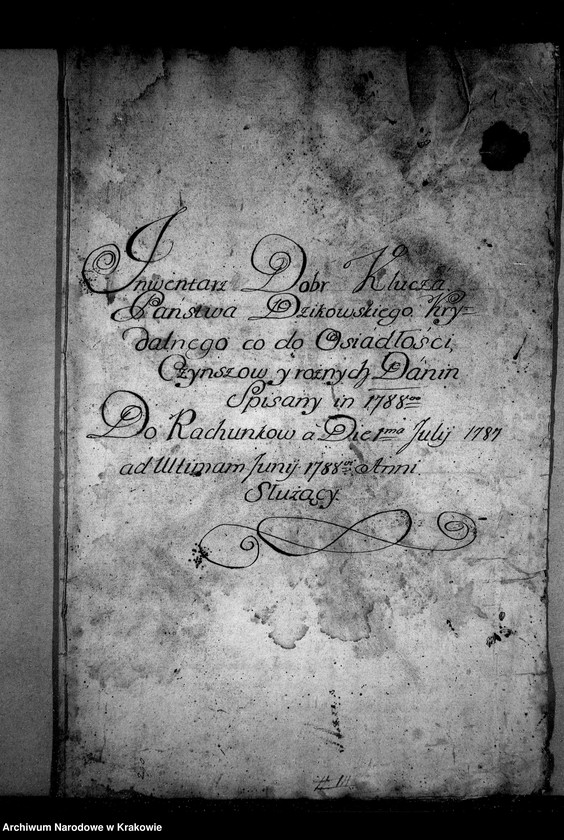 Inwentarz Dobr Klucza
Państwa Dzikowskiego Kry=
dalnego co do Osiadłości,
Czynszow y roznych Danin
Spisany in 1788
Do Rachunkow a Die 1ma Julij 1787
ad Ultimam Junij 1788 Anni
Służący.
Archiwum Narodowe w Krakowie